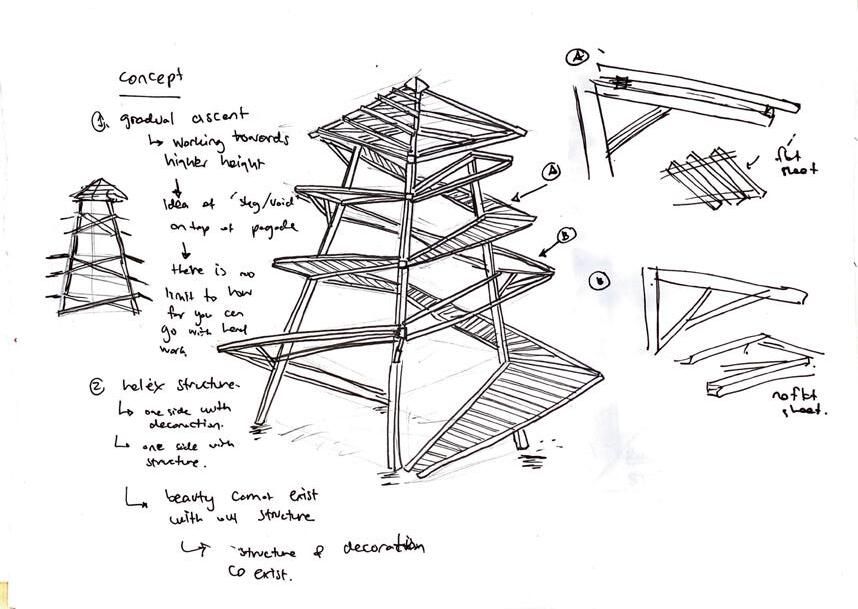 concept
①. gradual ascent
↳ working towards
higher height
↓
Idea of "sky/void"
on top of pagoda
↓
there is no
limit to how
far you can
go with hard
work
② helex structure.
↳ one side with
decoration.
↳ one side with
structure.
↳ beauty cannot exist
with out structure
↳ structure & decoration
co exist.
A
B
A
flat
sheet
B
no flat
sheet.